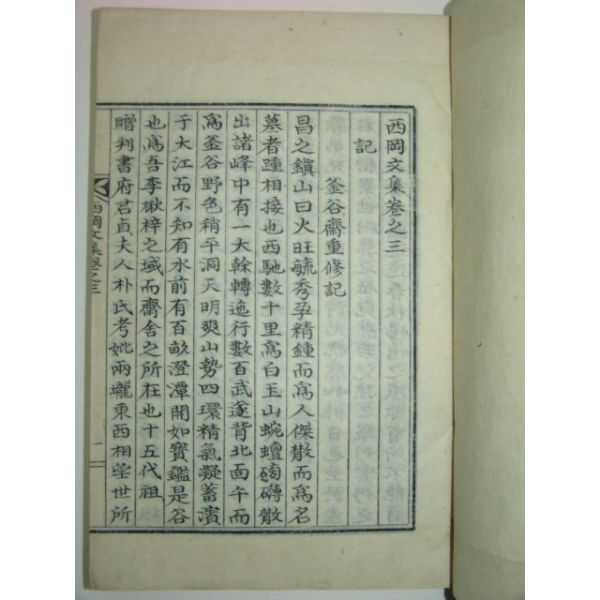 西岡文集卷之三
記
釜谷齋重修記
昌之鎭山曰火旺毓秀孕精鍾而爲人傑散而爲名
墓者踵相接也西馳數十里爲白玉山蜿蟺磅礴散
出諸峰中有一大幹轉迤行數百武遂背北面午而
爲釜谷野色稍平洞天明爽山勢四環精氣凝蓄濱
于大江而不知有水前有百畝澄潭開如寶鑑是谷
也爲吾李楸梓之域而齋舍之所在也十五代祖
贈判書府君貞夫人朴氏考妣兩壠東西相望世所
西岡文集卷之三
一